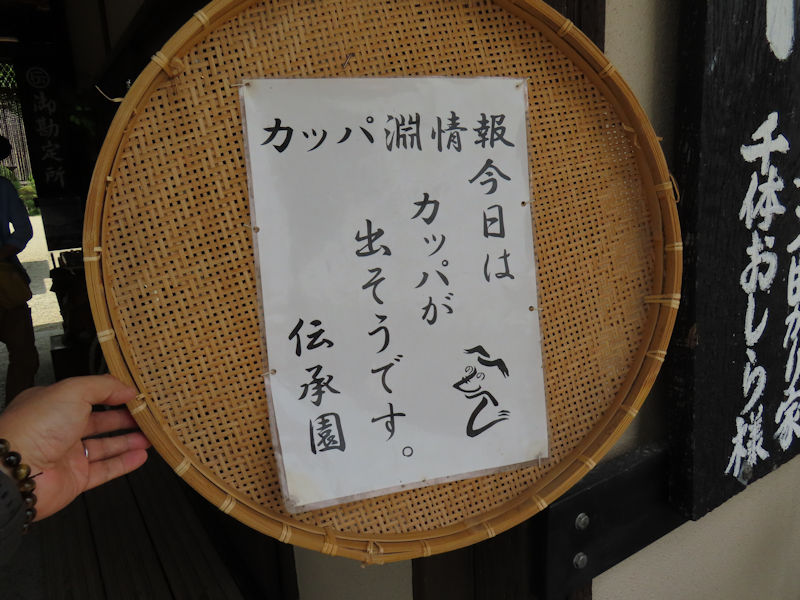 カッパ淵情報
今日は
カッパが
出そうです。
伝承園
千体おしら様
御勘定所